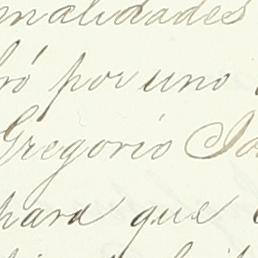 nalidades
ró por uno
Gregorio Jo
para que